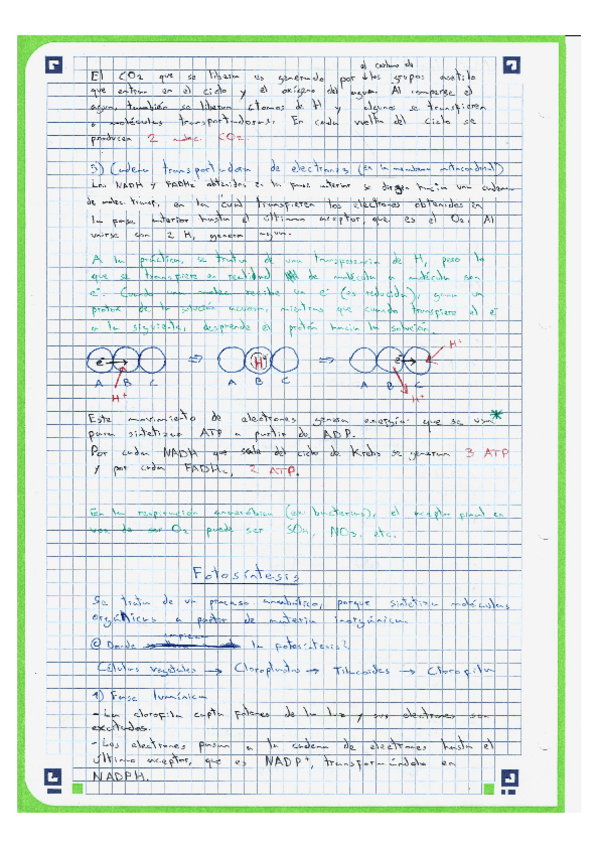 el carbono de
El CO2 que se libera es generado por los grupos acetilo
que entran en el ciclo y el oxígeno del agua. Al romperse el
agua, también se liberan átomos de H y algunos se transfieren
a moléculas transportadoras. En cada vuelta del ciclo se
producen 2 molec. CO2.
3) Cadena transportadora de electrones (en la membrana mitocondrial)
Los NADH y FADH2 obtenidos en la fase anterior se dirigen hacia una cadena
de molec. transp. en la cual transfieren los electrones obtenidos en
la fase anterior hasta el último aceptor, que es el O2. Al
unirse con 2 H, genera agua.
A la práctica, se trata de una transferencia de H, pero lo
que se transfiere en realidad de molécula a molécula son
e-. Cuando una molec recibe un e- (es reducida), gana un
protón de la solución acuosa, mientras que cuando transfiere el e-
a la siguiente, desprende el protón hacia la solución.
e- H H+
A B C A B C A B C
H+ H+
Este movimiento de electrones genera energía que se usa *
para sintetizar ATP a partir de ADP.
Por cada NADH que sale del ciclo de Krebs se generan 3 ATP
y por cada FADH2, 2 ATP.
En la respiración anaeróbica (ex: bacterias), el aceptor final en
vez de ser O2 puede ser SO4, NO3, etc.
Fotosíntesis
Se trata de un proceso anabólico, porque sintetiza moléculas
orgánicas a partir de materia inorgánica.
empieza
¿Donde la fotosíntesis?
Células vegetales → Cloroplastos → Tilacoides → Clorofila
1) Fase lumínica
- La clorofila capta fotones de la luz y sus electrones son
excitados.
- Los electrones pasan a la cadena de electrones hasta el
último aceptor, que es NADP+, transformándola en
NADPH.